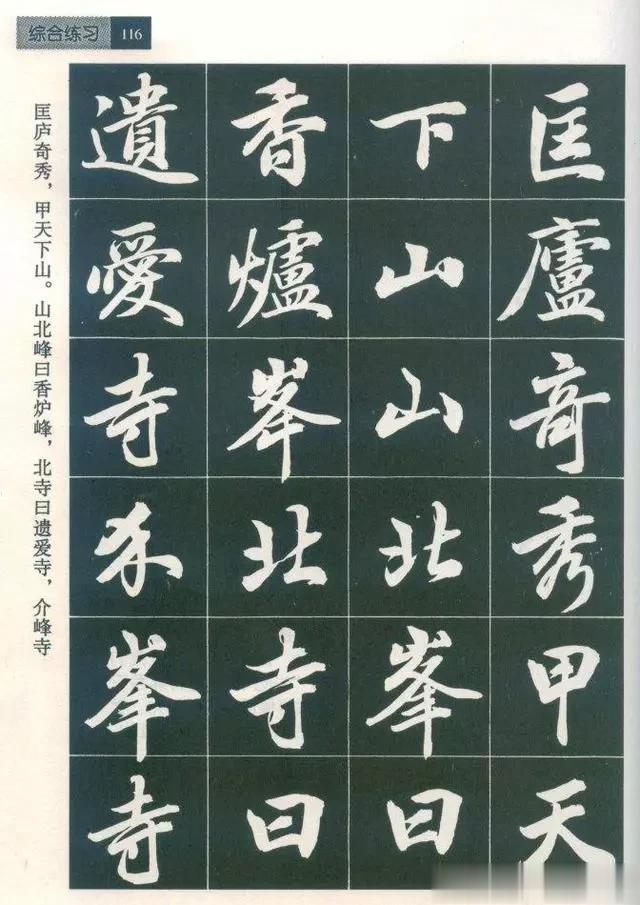 综合练习 116
匡廬奇秀甲天
下山山北峯曰
香爐峯北寺曰
遺愛寺介峯寺
匡庐奇秀，甲天下山。山北峰曰香炉峰，北寺曰遗爱寺，介峰寺